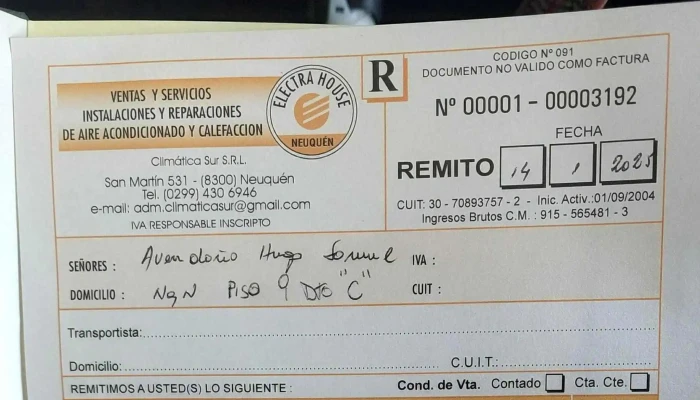 VENTAS Y SERVICIOS
INSTALACIONES Y REPARACIONES
DE AIRE ACONDICIONADO Y CALEFACCION
ELECTRA HOUSE
NEUQUÉN
Climática Sur S.R.L.
San Martín 531 - (8300) Neuquén
Tel. (0299) 430 6946
e-mail: adm.climaticasur@gmail.com
IVA RESPONSABLE INSCRIPTO
R
CODIGO Nº 091
DOCUMENTO NO VALIDO COMO FACTURA
Nº 00001 - 00003192
FECHA
REMITO 14 1 2025
CUIT: 30 - 70893757 - 2 - Inic. Activ.:01/09/2004
Ingresos Brutos C.M. : 915 - 565481 - 3
SEÑORES : Avendaño Hugo IVA :
DOMICILIO : NQN PISO 9 DTO "C" CUIT :
Transportista:
Domicilio: C.U.I.T.:
REMITIMOS A USTED(S) LO SIGUIENTE : Cond. de Vta. Contado Cta. Cte.